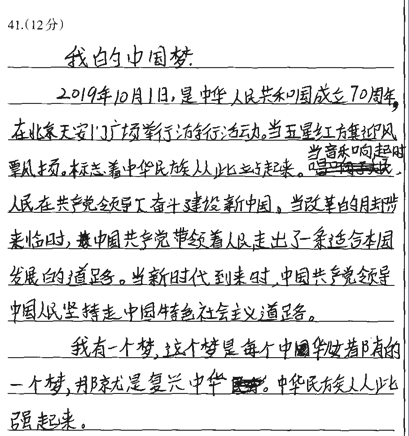 41.(12分)
我的中国梦
2019年10月1日,是中华人民共和国成立70周年,
在北京天安门广场举行游行活动。当五星红旗迎风
飘扬。标志着中华民族从此站起来。当音乐响起时
人民在共产党领导下奋斗建设新中国。当改革的时
来临时,中国共产党带领着人民走出了一条适合本国
发展的道路。当新时代到来时,中国共产党领导
中国人民坚持走中国特色社会主义道路。
我有一个梦,这个梦是每个中国华都有的
一个梦,那就是复兴中华。中华民族从此
强起来。